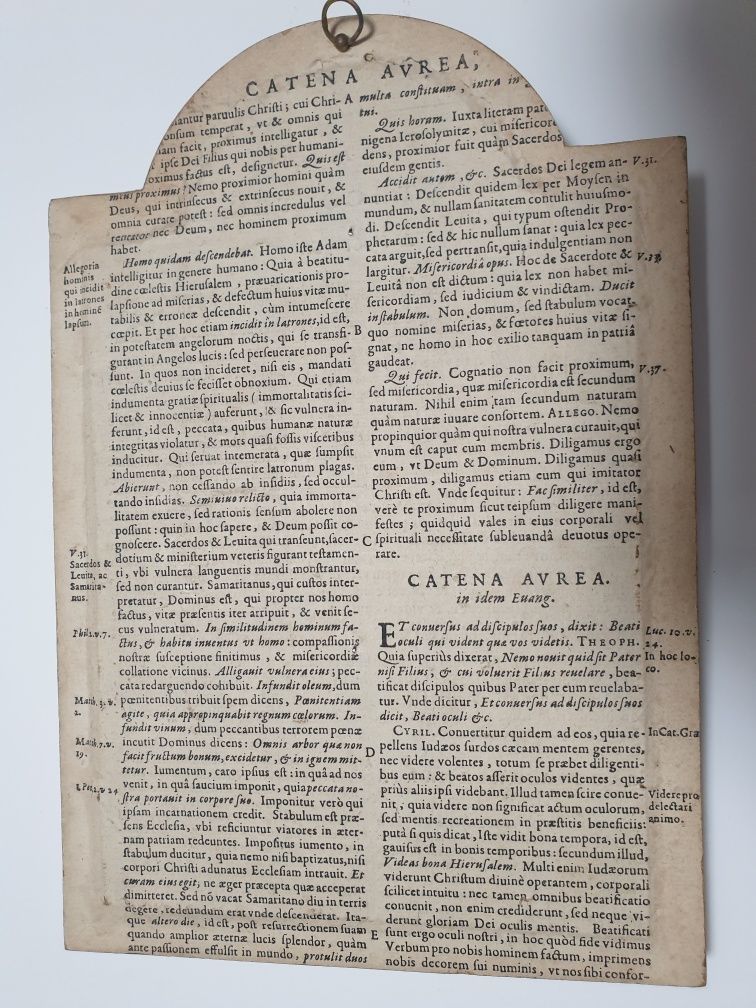 CATENA AVREA,
antur paruulis Christi; cui Chri-
temperat, vt & omnis qui
facit, proximus intelligatur, &
ipse Dei Filius qui nobis per humani-
oximus factus est, designetur. Quis est
meus proximus? Nemo proximior homini quàm
Deus, qui intrinsecus & extrinsecus nouit, &
omnia curare potest: sed omnis incredulus vel
tentator nec Deum, nec hominem proximum
habet.
Homo quidam descendebat. Homo iste Adam
intelligitur in genere humano: Quia à beatitu-
dine cœlestis Hierusalem, præuaricationis pro-
lapsione ad miserias, & defectum huius vitæ mu-
tabilis & erroneæ descendit, cùm intumescere
cœpit. Et per hoc etiam incidit in latrones, id est,
in potestatem angelorum noctis, qui se transfi-
gurant in Angelos lucis: sed perseuerare non pos-
sunt. In quos non incideret, nisi eis, mandati
cœlestis deuius se fecisset obnoxium. Qui etiam
indumenta gratiæ spiritualis (immortalitatis sci-
licet & innocentiæ) auferunt, & sic vulnera in-
ferunt, id est, peccata, quibus humanæ naturæ
integritas violatur, & mors quasi fossis visceribus
inducitur. Qui seruat intemerata, quæ sumpsit
indumenta, non potest sentire latronum plagas.
Abierunt, non cessando ab insidiis, sed occul-
tando insidias. Semiuiuo relicto, quia immorta-
litatem exuere, sed rationis sensum abolere non
possunt: quin in hoc sapere, & Deum possit co-
gnoscere. Sacerdos & Leuita qui transeunt, sacer-
dotium & ministerium veteris figurant testamen-
ti, vbi vulnera languentis mundi monstrantur,
sed non curantur. Samaritanus, qui custos inter-
pretatur, Dominus est, qui propter nos homo
factus, vitæ præsentis iter arripuit, & venit se-
cus vulneratum. In similitudinem hominum fa-
ctus, & habitu inuentus vt homo: compassionis
nostræ susceptione finitimus, & misericordiæ
collatione vicinus. Alligauit vulnera eius; pec-
cata redarguendo cohibuit. Infundit oleum, dum
pœnitentibus tribuit spem dicens, Pœnitentiam
agite, quia appropinquabit regnum cælorum. In-
fundit vinum, dum peccantibus terrorem pœnæ
incutit Dominus dicens: Omnis arbor qua non
facit fructum bonum, excidetur, & in ignem mit-
tetur. Iumentum, caro ipsius est: in quâ ad nos
venit, in quâ saucium imponit, quia peccata no-
stra portauit in corpore suo. Imponitur verò qui
ipsam incarnationem credit. Stabulum est præ-
sens Ecclesia, vbi reficiuntur viatores in æter-
nam patriam redeuntes. Impositus iumento, in
stabulum ducitur, quia nemo nisi baptizatus, nisi
corpori Christi adunatus Ecclesiam intrauit. Et
curam eius egit; ne æger præcepta quæ acceperat
dimitteret. Sed nō vacat Samaritano diu in terris
degere, redeundum erat vnde descenderat. Ita-
que altero die, id est, post resurrectionem suam
quando amplior æternæ lucis splendor, quàm
ante passionem effulsit in mundo, protulit duos
Allegoria
hominis
qui incidit
in latrones
in hominē
lapsum.
V.31.
Sacerdos &
Leuita, ac
Samarita-
nus.
Phil. v. 7.
Matth. 3. v.
2.
Matth. 7. v.
19.
1. Pet. 2. v 24
A
B
C
D
E
multa constituam, intra in
tus.
Quis horum. Iuxta literam pat
nigena Ierosolymitæ, cui misericor
dens, proximior fuit quàm Sacerdos
eiusdem gentis.
Accidit autem, &c. Sacerdos Dei legem an-
nuntiat: Descendit quidem lex per Moysen in
mundum, & nullam sanitatem contulit huiusmo-
di. Descendit Leuita, qui typum ostendit Pro-
phetarum: sed & hic nullum sanat: quia lex pec-
cata arguit, sed pertransit, quia indulgentiam non
largitur. Misericordiâ opus. Hoc de Sacerdote &
Leuitâ non est dictum: quia lex non habet mi-
sericordiam, sed iudicium & vindictam. Ducit
in stabulum. Non domum, sed stabulum vocat,
quo nomine miserias, & fœtores huius vitæ si-
gnat, ne homo in hoc exilio tanquam in patriâ
gaudeat.
Qui fecit. Cognatio non facit proximum,
sed misericordia, quæ misericordia est secundum
naturam. Nihil enim tam secundum naturam
quàm naturæ iuuare consortem. ALLEGO. Nemo
propinquior quàm qui nostra vulnera curauit, qui
vnum est caput cum membris. Diligamus ergo
eum, vt Deum & Dominum. Diligamus quasi
proximum, diligamus etiam eum qui imitator
Christi est. Vnde sequitur: Fac similiter, id est,
verè te proximum sicut teipsum diligere mani-
festes; quidquid vales in eius corporali vel
spirituali necessitate subleuandâ deuotus ope-
rare.
V.31.
V.37.
CATENA AVREA.
in idem Euang.
ET conuersus ad discipulos suos, dixit: Beati
oculi qui vident quæ vos videtis. THEOPH.
Quia superiùs dixerat, Nemo nouit quid sit Pater
nisi Filius, & cui voluerit Filius reuelare, bea-
tificat discipulos quibus Pater per eum reuelaba-
tur. Vnde dicitur, Et conuersus ad discipulos suos
dicit, Beati oculi &c.
CYRIL. Conuertitur quidem ad eos, quia re-
pellens Iudæos surdos cæcam mentem gerentes,
nec videre volentes, totum se præbet diligenti-
bus eum: & beatos asserit oculos videntes, quæ
priùs aliis ipsi videbant. Illud tamen scire conue-
nit, quia videre non significat actum oculorum,
sed mentis recreationem in præstitis beneficiis:
putà si quis dicat, Iste vidit bona tempora, id est,
gauisus est in bonis temporibus: secundum illud,
Videas bona Hierusalem. Multi enim Iudæorum
viderunt Christum diuinè operantem, corporali
scilicet intuitu: nec tamen omnibus beatificatio
conuenit, non enim crediderunt, sed neque vi-
derunt gloriam Dei oculis mentis. Beatificati
sunt ergo oculi nostri, in hoc quòd fide vidimus
Verbum pro nobis hominem factum, imprimens
nobis decorem sui numinis, vt nos sibi confor-
Luc. 10. v.
24.
In hoc lo-
co.
In Cat. Græ
Videre pro
delectari
animo.